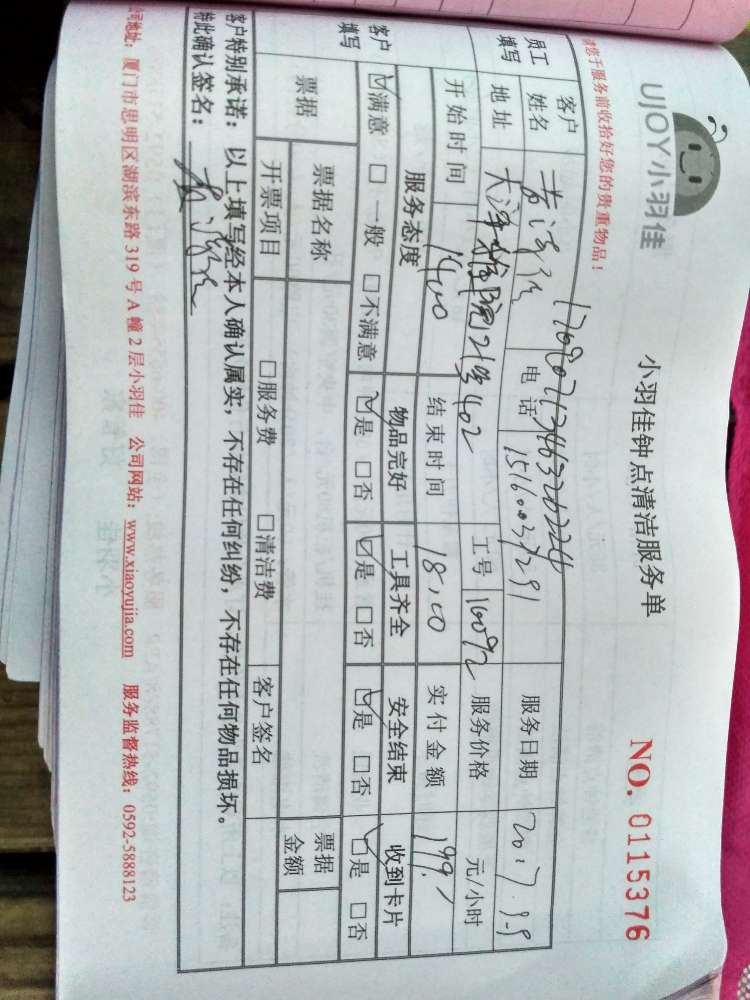 UJOY小羽佳
小羽佳钟点清洁服务单
NO. 0115376
请您于服务前收拾好您的贵重物品！
员工填写
客户姓名 电话 服务日期 2017.9.9
地址 工号 16092 服务价格 元/小时
开始时间 1400 结束时间 18:00 实付金额
客户填写
服务态度 物品完好 工具齐全 安全结束 收到卡片
☑满意 □一般 □不满意 ☑是 □否 ☑是 □否 ☑是 □否 ☑是 □否
票据 票据名称 票据金额
开票项目 □服务费 □清洁费 客户签名
客户特别承诺：以上填写经本人确认属实，不存在任何纠纷，不存在任何物品损坏。
特此确认签名：
公司地址：厦门市思明区湖滨东路319号A幢2层小羽佳 公司网站：www.xiaoyujia.com 服务监督热线：0592-5888123